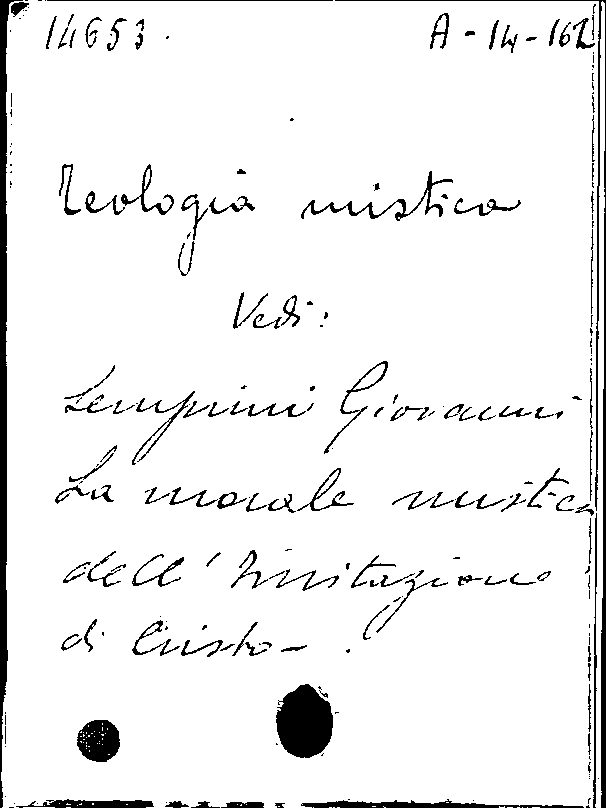 14653. A-14-162
Teologia mistica
Vedi:
Semprini Giovanni
La morale mistica
dell'Imitazione
di Cristo-.